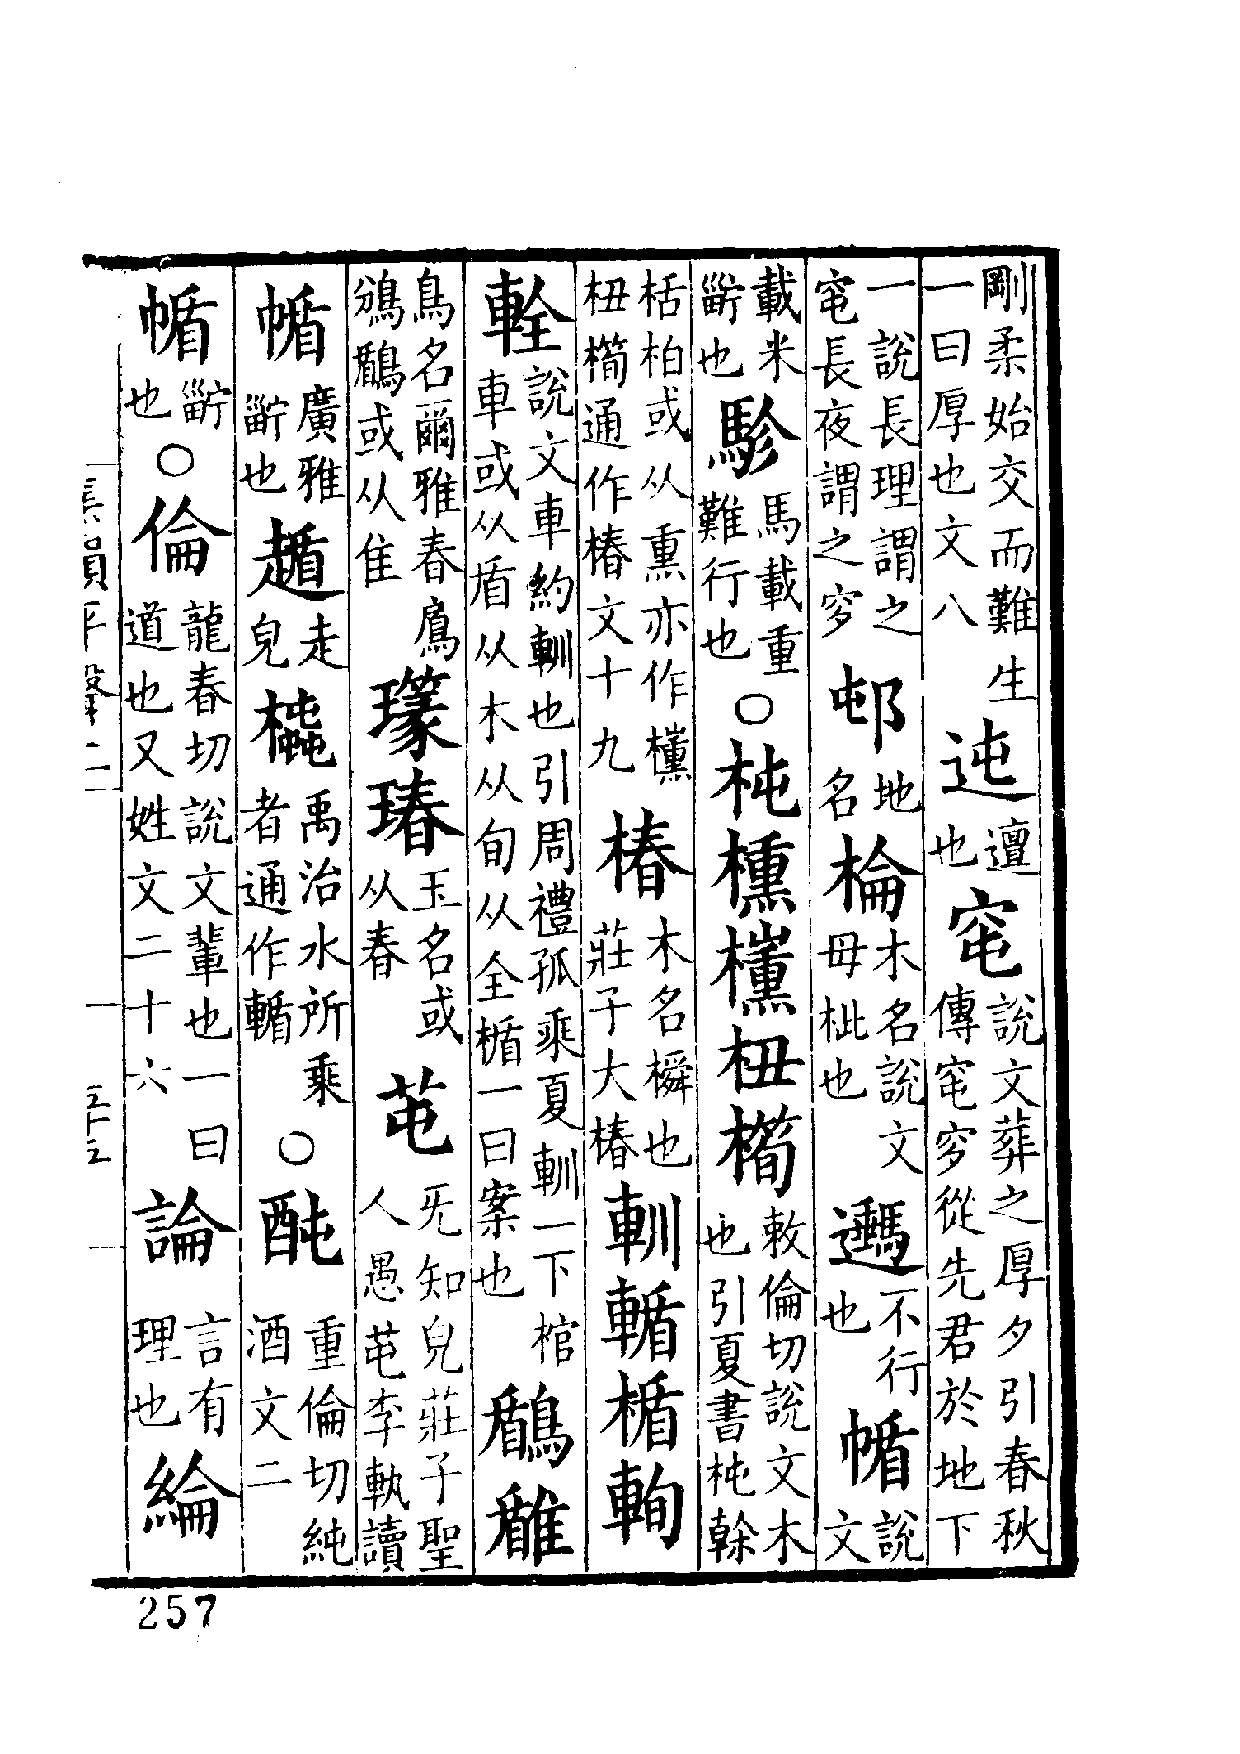 剛柔始交而難生一曰厚也文八迍邅也窀說文葬之厚夕引春秋傳窀穸從先君於地下
一說長理謂之窀長夜謂之穸邨地名棆木名說文毋杶也不行也㡒說文
載米也駗馬載重難行也○杶櫄杻橁敕倫切說文木也引夏書杶榦
栝柏或从熏亦作杻橁通作椿文十九椿木名橓也莊子大椿䡅輴楯
輇說文車約䡅也引周禮孤乘夏䡅一下棺車或从盾从木从旬从全楯一曰案也
鳥名爾雅春鳸鳻或从隹瑃玉名或从春芚旡知皃莊子聖人愚芚李軌讀
㡒廣雅也走皃禹治水所乘者通作輴○重倫切純酒文二
㡒也○倫龍春切說文輩也一曰道也又姓文二十六論言有理也綸
集韻平聲二
257